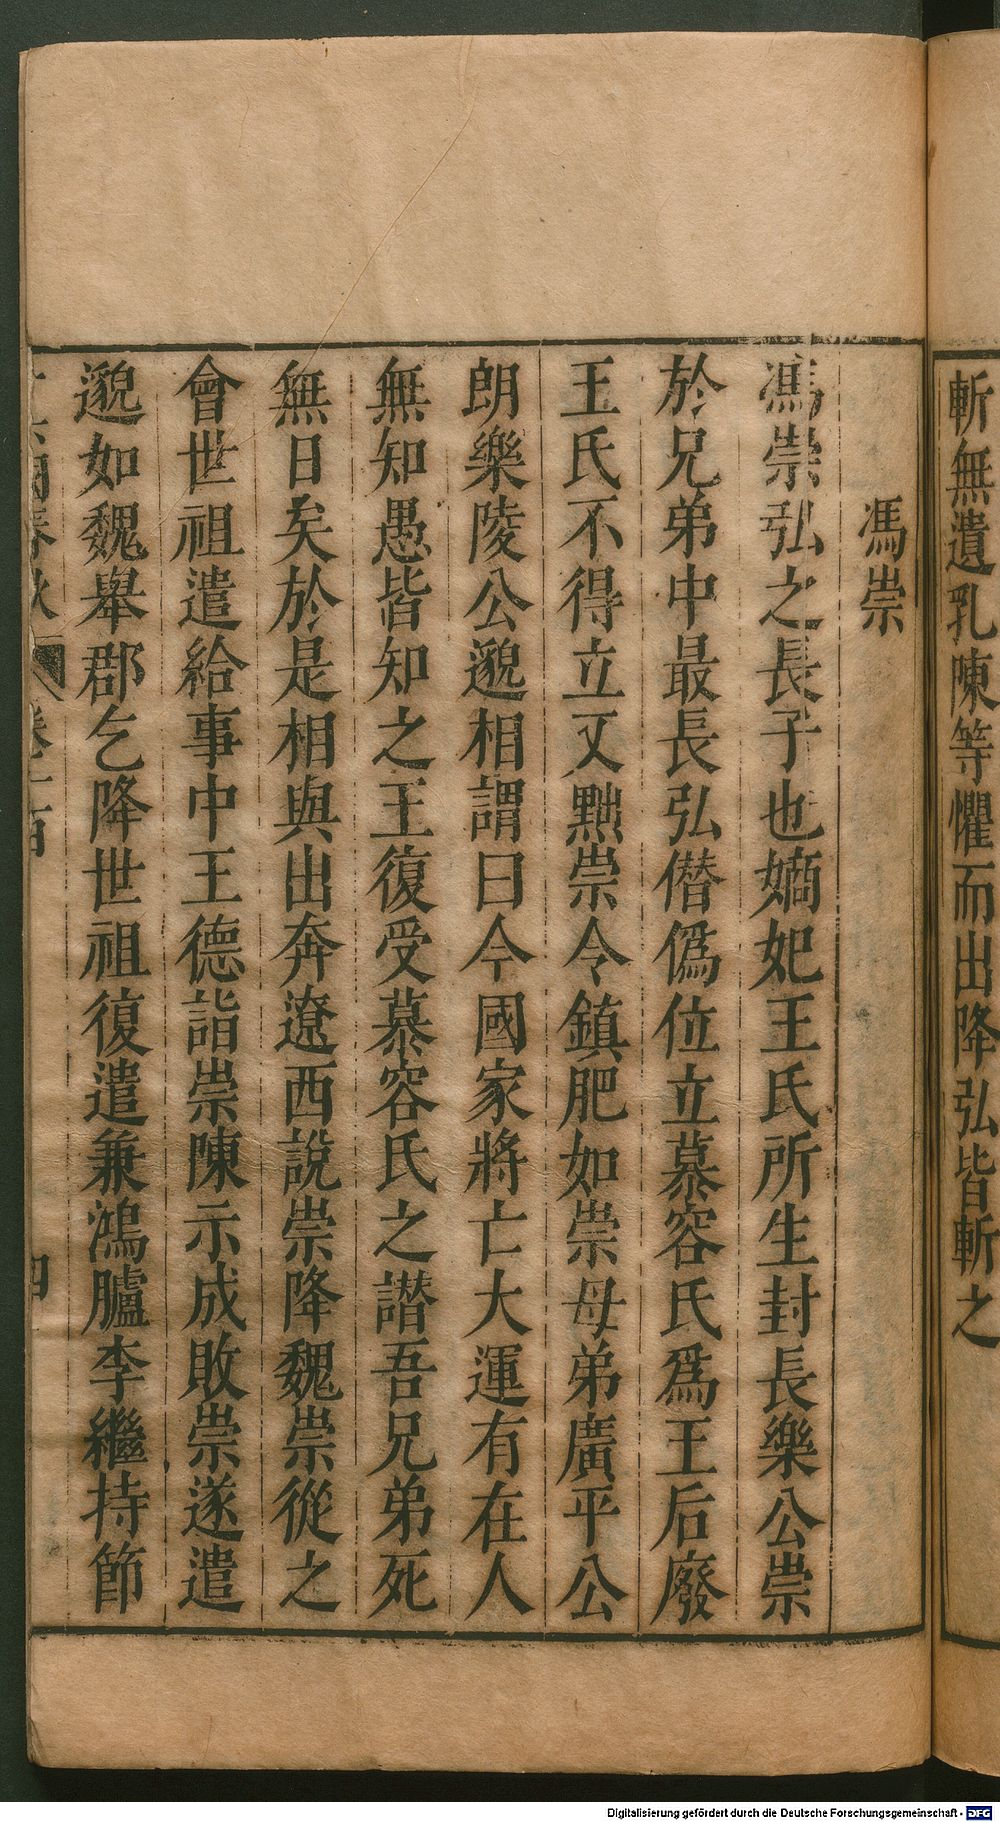 斬無遺孔陳等懼而出降弘皆斬之
馮崇
馮崇弘之長子也嫡妃王氏所生封長樂公崇
於兄弟中最長弘僭僞位立慕容氏爲王后廢
王氏不得立又黜崇令鎮肥如崇母弟廣平公
朗樂陵公邈相謂曰今國家將亡大運有在人
無知愚皆知之王復受慕容氏之譖吾兄弟死
無日矣於是相與出奔遼西說崇降魏崇從之
會世祖遣給事中王德詣崇陳示成敗崇遂遣
邈如魏舉郡乞降世祖復遣兼鴻臚李繼持節
十六國春秋 卷一百 四
Digitalisierung gefördert durch die Deutsche Forschungsgemeinschaft - DFG